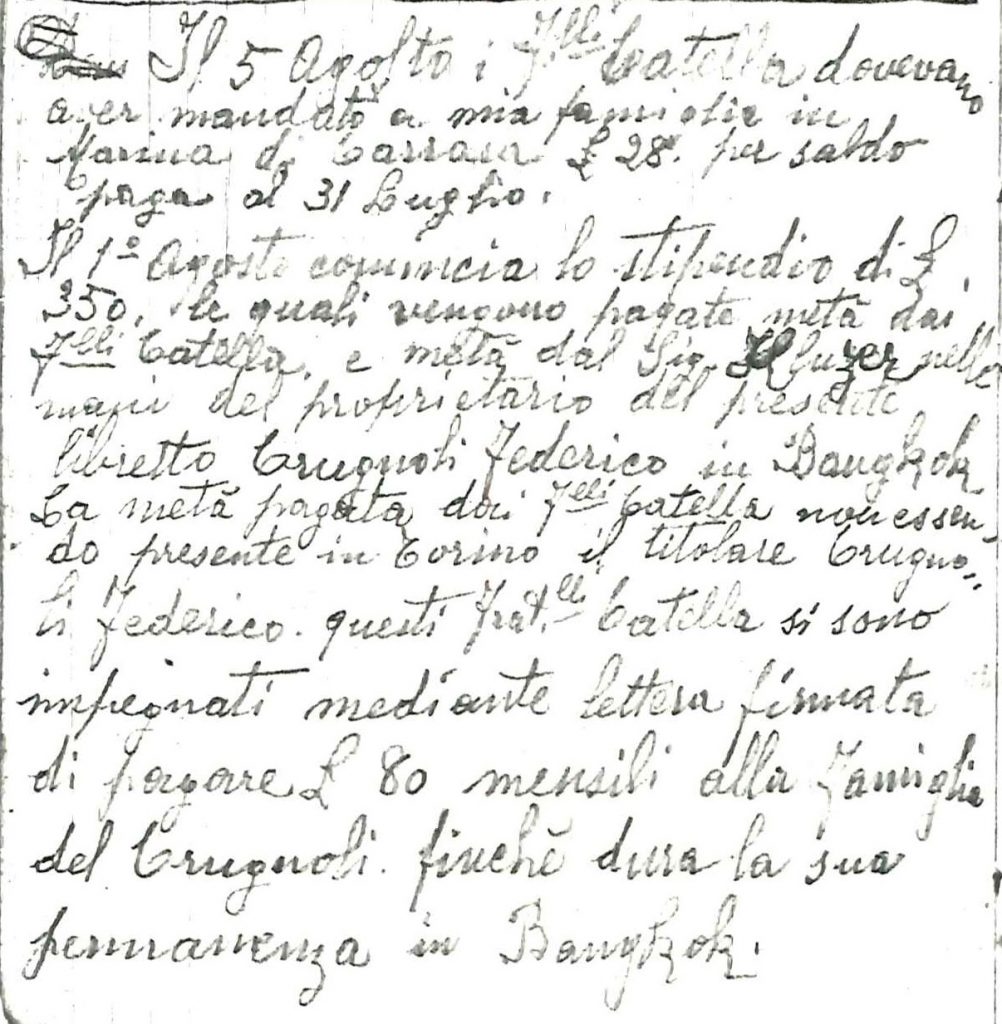 Il 5 Agosto i F.lli Catella dovevano
aver mandato a mia famiglia in
Marina di Carrara £ 28. per saldo
paga al 31 Luglio.
Il 1º Agosto comincia lo stipendio di £
350, le quali vengono pagate metà dai
F.lli Catella, e metà dal Sig. nelle
mani del proprietario del presente
libretto Crugnoli Federico in Bangkok
La metà pagata dai F.lli Catella non essen-
do presente in Torino il titolare Crugno-
li Federico. questi Frat.lli Catella si sono
impegnati mediante lettera firmata
di pagare £ 80 mensili alla Famiglia
del Crugnoli. finchè dura la sua
permanenza in Bangkok.